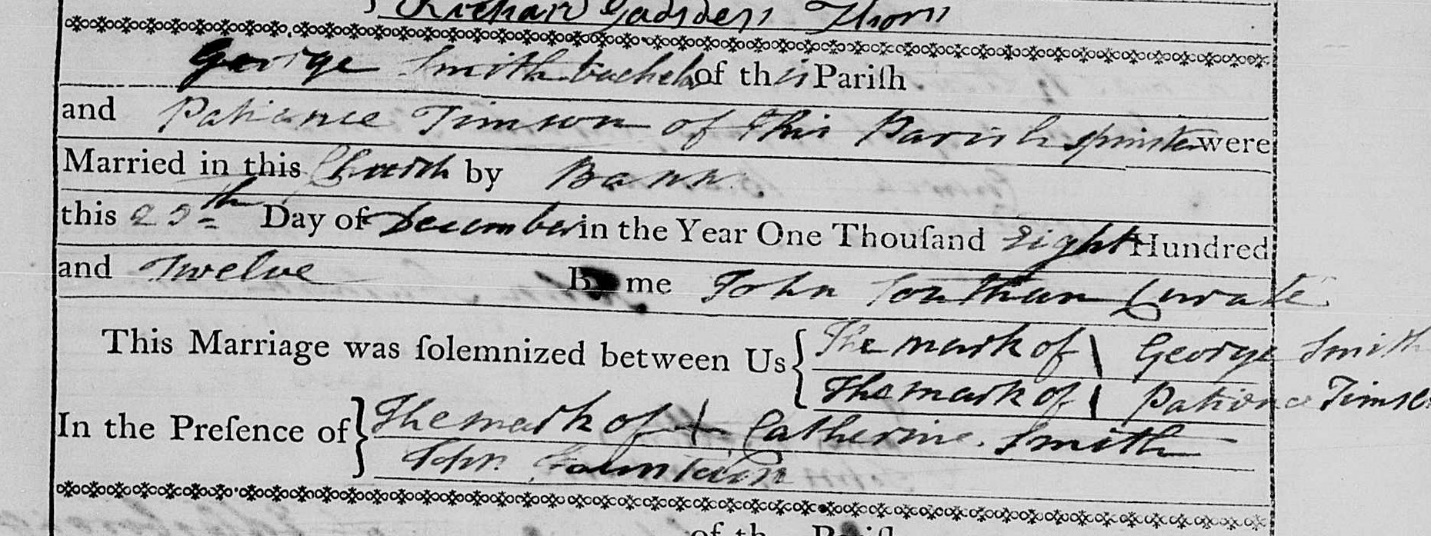 Richard Gadsden Thorn
George Smith bachelor of this Pariſh
and Patiance Timson of This Parish spinster were
Married in this Church by Bann
this 25th Day of December in the Year One Thouſand Eight Hundred
and Twelve By me John Jonthan Curate
This Marriage was ſolemnized between Us { The mark of \ George Smith
The mark of \ Patiance Timson
In the Preſence of } The mark of + Catherine Smith
John Fountain
of th Pariſh